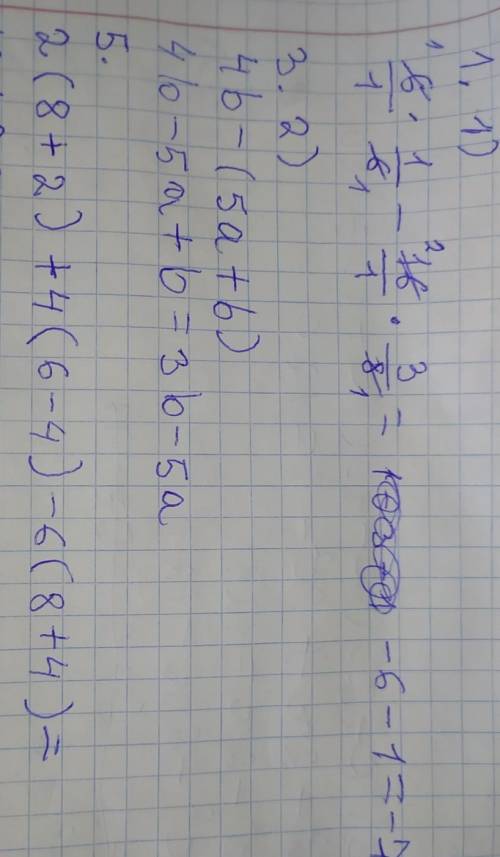 1. 1)
6/1 · 1/6 - 16/1 · 3/8 = -6 - 1 = -7
3. 2)
4b - (5a + b)
4b - 5a + b = 3b - 5a
5.
2(8 + 2) + 4(6 - 4) - 6(8 + 4) =